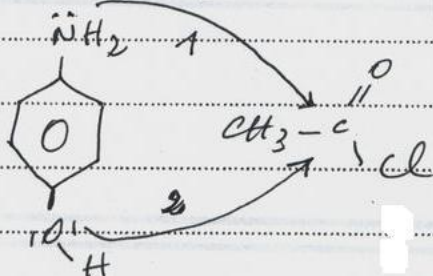 NH2
1
O
CH3 - C
Cl
O
2
O
H